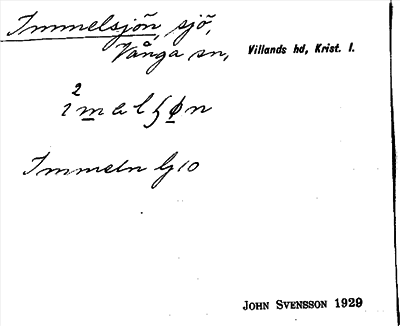 Immelsjön, sjö,
Vånga sn, Villands hd, Krist. l.
Immeln
JOHN SVENSSON 1929